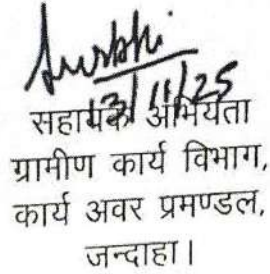 Surbhi
13/11/25
सहायक अभियंता
ग्रामीण कार्य विभाग,
कार्य अवर प्रमण्डल,
जन्दाहा।